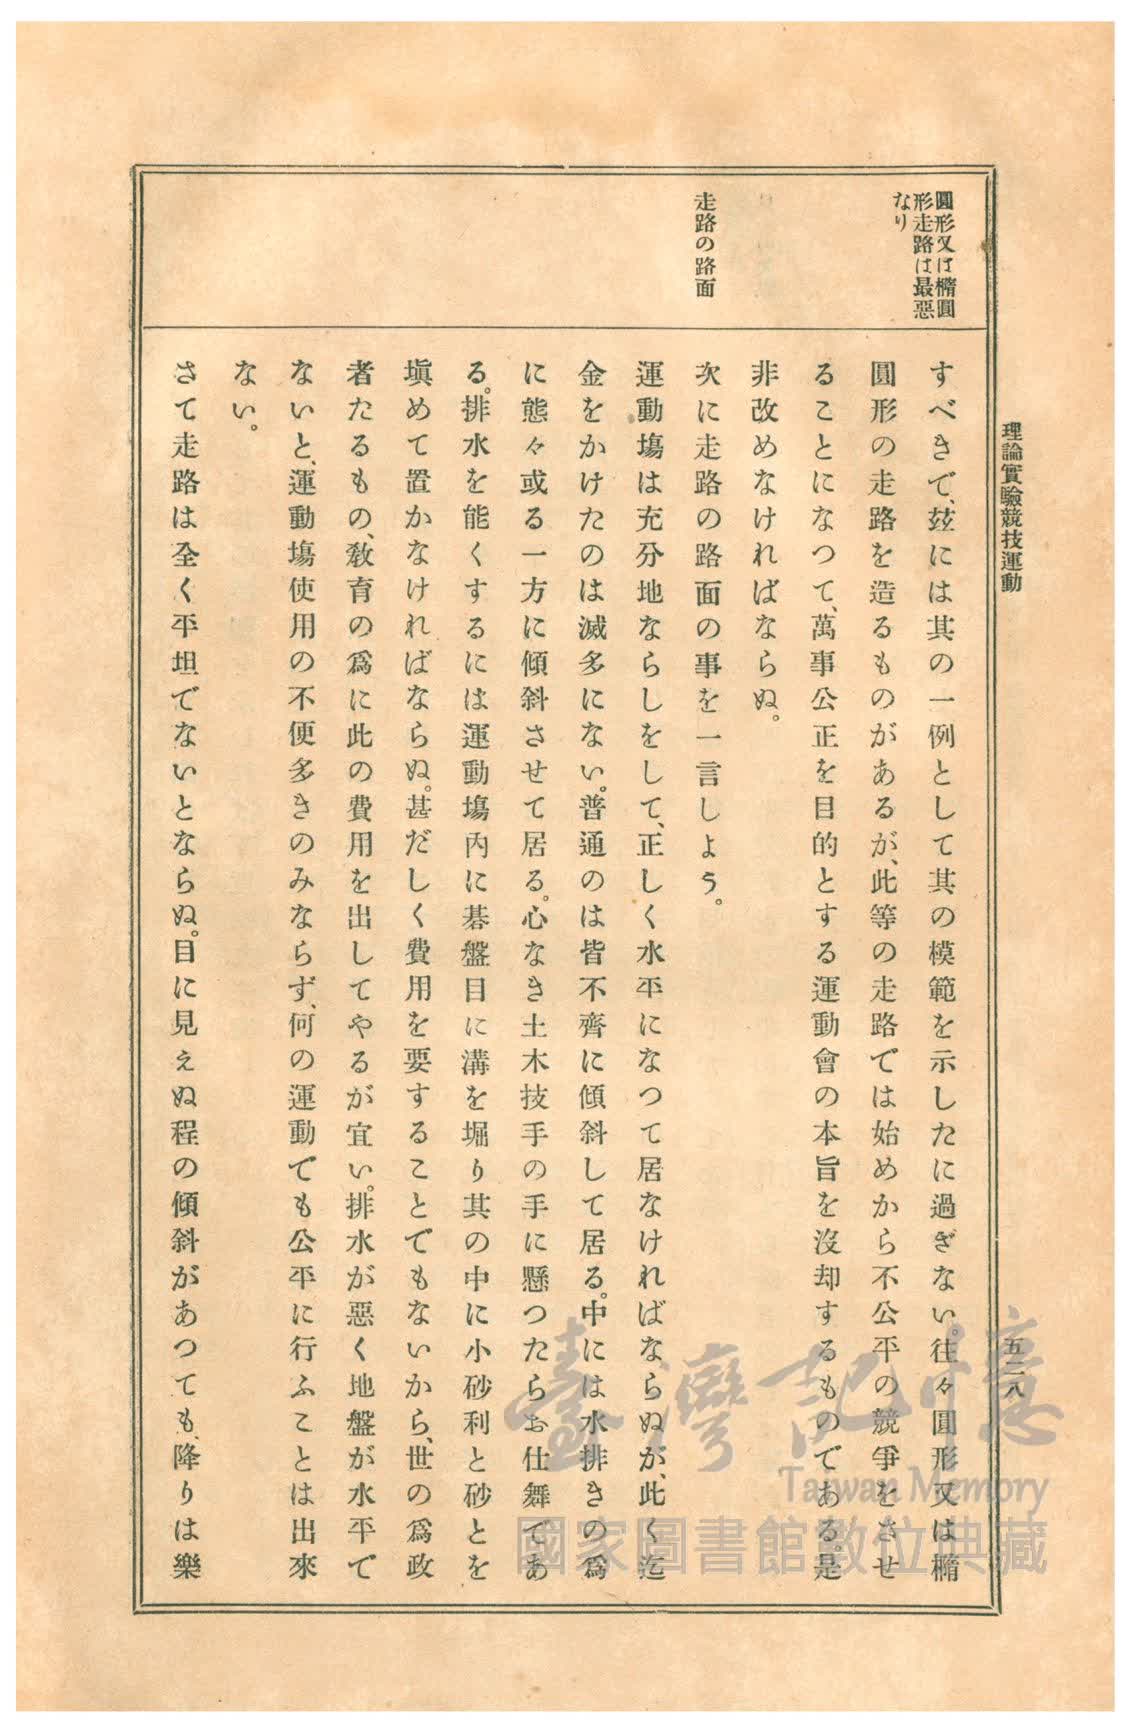 理論實驗競技運動
五二八
圓形又は橢圓
形走路は最惡
なり
走路の路面
すべきで、玆には其の一例として其の模範を示したに過ぎない。往々圓形又は橢
圓形の走路を造るものがあるが、此等の走路では始めから不公平の競爭をさせ
ることになつて、萬事公正を目的とする運動會の本旨を沒却するものである。是
非改めなければならぬ。
次に走路の路面の事を一言しよう。
運動塲は充分地ならしをして、正しく水平になつて居なければならぬが、此く迄
金をかけたのは滅多にない。普通のは皆不齊に傾斜して居る。中には水排きの爲
に態々或る一方に傾斜させて居る。心なき土木技手の手に懸つたらお仕舞であ
る。排水を能くするには運動塲內に碁盤目に溝を堀り其の中に小砂利と砂とを
塡めて置かなければならぬ。甚だしく費用を要することでもないから、世の爲政
者たるもの、敎育の爲に此の費用を出してやるが宜い。排水が惡く地盤が水平で
ないと、運動塲使用の不便多きのみならず、何の運動でも公平に行ふことは出來
ない。
さて走路は全く平坦でないとならぬ。目に見えぬ程の傾斜があつても、降りは樂
臺灣記憶
Taiwan Memory
國家圖書館數位典藏